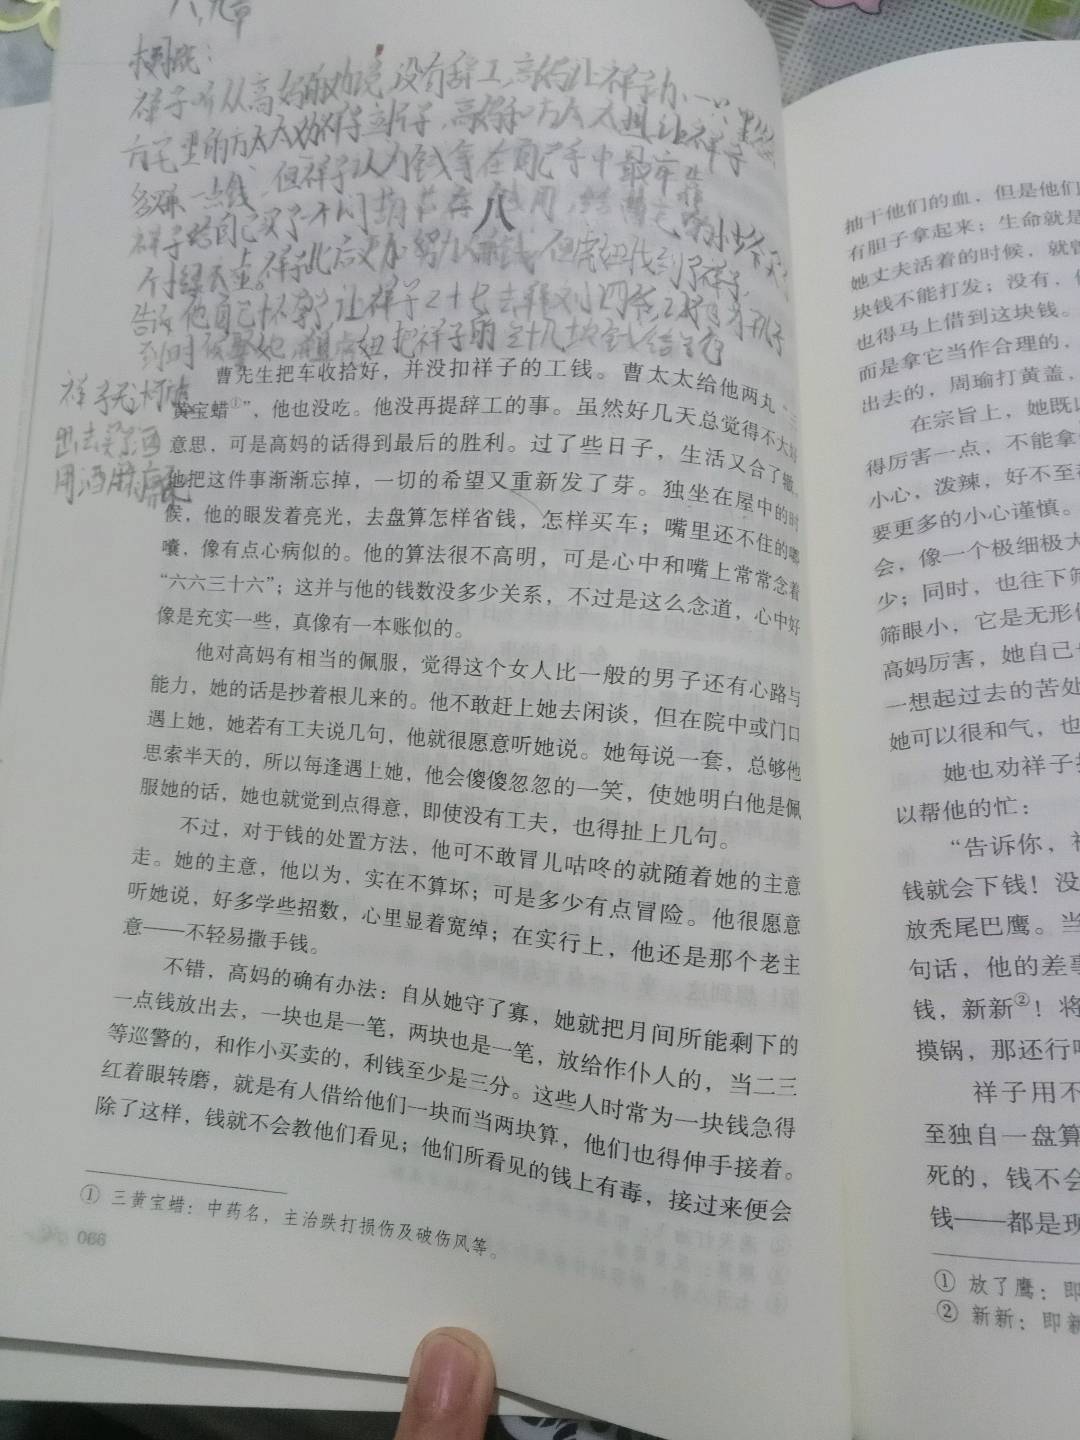 八、九章
梗概：
祥子听从高妈的劝说，没有辞工，高妈让祥子
方宅里的方太太劝祥子立折子，高妈和方太太想让祥子
多赚一点钱，但祥子认为钱拿在自己手中最牢靠
祥子给自己买了一个闷葫芦存钱用
祥子此后更加努力赚钱，但虎妞找到了祥子，
告诉他自己怀孕了，让祥子二十七去拜刘四爷
到时 虎妞把祥子的三十几块钱给了他
祥子无
出去买了酒
用酒麻痹
八
曹先生把车收拾好，并没扣祥子的工钱。曹太太给他两丸“三
黄宝蜡①”，他也没吃。他没再提辞工的事。虽然好几天总觉得不大好
意思，可是高妈的话得到最后的胜利。过了些日子，生活又合了辙，
他把这件事渐渐忘掉，一切的希望又重新发了芽。独坐在屋中的时
候，他的眼发着亮光，去盘算怎样省钱，怎样买车；嘴里还不住的嘟
囔，像有点心病似的。他的算法很不高明，可是心中和嘴上常常念着
“六六三十六”；这并与他的钱数没多少关系，不过是这么念道，心中好
像是充实一些，真像有一本账似的。
他对高妈有相当的佩服，觉得这个女人比一般的男子还有心路与
能力，她的话是抄着根儿来的。他不敢赶上她去闲谈，但在院中或门口
遇上她，她若有工夫说几句，他就很愿意听她说。她每说一套，总够他
思索半天的，所以每逢遇上她，他会傻傻忽忽的一笑，使她明白他是佩
服她的话，她也就觉到点得意，即使没有工夫，也得扯上几句。
不过，对于钱的处置方法，他可不敢冒儿咕咚的就随着她的主意
走。她的主意，他以为，实在不算坏；可是多少有点冒险。他很愿意
听她说，好多学些招数，心里显着宽绰；在实行上，他还是那个老主
意——不轻易撒手钱。
不错，高妈的确有办法：自从她守了寡，她就把月间所能剩下的
一点钱放出去，一块也是一笔，两块也是一笔，放给作仆人的，当二三
等巡警的，和作小买卖的，利钱至少是三分。这些人时常为一块钱急得
红着眼转磨，就是有人借给他们一块而当两块算，他们也得伸手接着。
除了这样，钱就不会教他们看见；他们所看见的钱上有毒，接过来便会
① 三黄宝蜡：中药名，主治跌打损伤及破伤风等。
066
抽干他们的血，但是他们
有胆子拿起来；生命就是
她丈夫活着的时候，就曾
块钱不能打发；没有，
也得马上借到这块钱。
而是拿它当作合理的，
出去的，周瑜打黄盖，
在宗旨上，她既
得厉害一点，不能拿
小心，泼辣，好不至
要更多的小心谨慎。
会，像一个极细极大
少；同时，也往下筛
筛眼小，它是无形
高妈厉害，她自己
一想起过去的苦处
她可以很和气，也
她也劝祥子
以帮他的忙：
“告诉你，祥
钱就会下钱！没
放秃尾巴鹰。当
句话，他的差事
钱，新新②！将
摸锅，那还行
祥子用不
至独自一盘算
死的，钱不会
钱——都是现
① 放了鹰：即
② 新新：即新